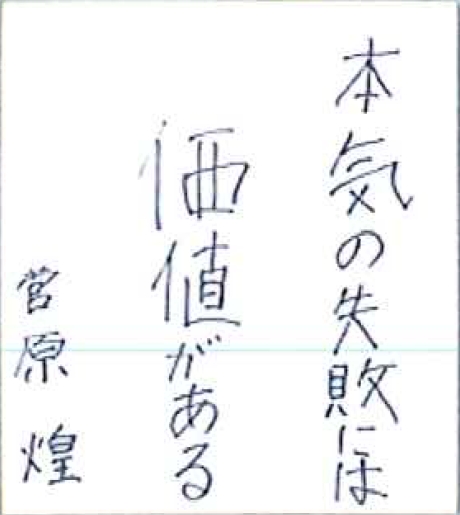 本気の失敗には
価値がある
営原 煌